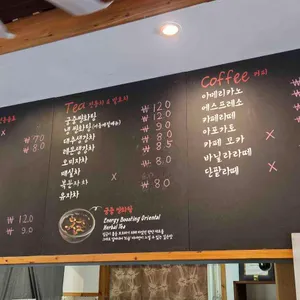 Tea 전통차 & 발효차
궁중쌍화탕 ₩ 12.0
냉 쌍화탕 ₩ 12.0
대추생강차 ₩ 9.0
모과생강차 ₩ 8.0
오미자차 ₩ 8.5
매실차 ₩ 8.0
복분자차 X
유자차 ₩ 8.0
궁중 쌍화탕
Energy Boosting Oriental
Herbal Tea
Coffee 커피
아메리카노
에스프레소
카페라떼
아포가토
카페 모카 X
바닐라라떼
단팥라떼 ₩
X
₩ 7.0
₩ 8.0
X
₩ 12.0
₩ 9.0